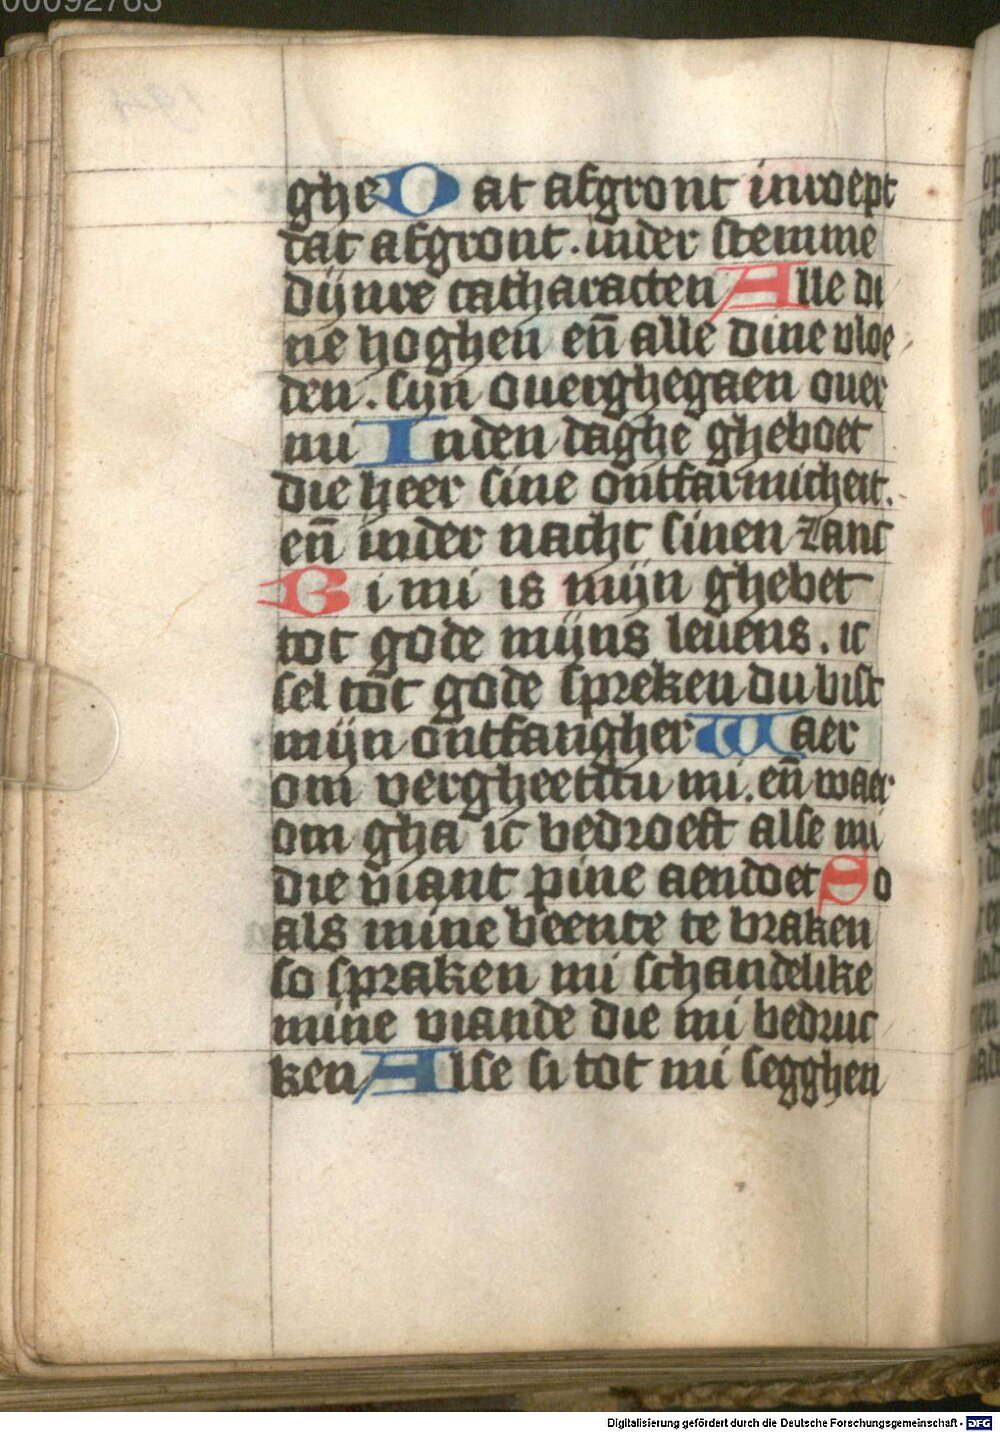 00092763
ghe Dat afgront inroept
dat afgront. inder stemme
dijnre catharacten Alle di
ne hoghen eñ alle dine vloe
den. sijn ouerghegaen ouer
mi Inden daghe gheboet
die heer sine ontfarmicheit.
eñ inder nacht sinen zanc
Bi mi is mijn ghebet
tot gode mijns leuens. ic
sel tot gode spreken du bist
mijn ontfangher Waer
om vergheetstu mi. eñ waer
om gha ic bedroeft alse mi
die viant pine aendoet So
als mine beente te braken
so spraken mi schandelike
mine viande die mi bedruc
ken Alse si tot mi segghen
Digitalisierung gefördert durch die Deutsche Forschungsgemeinschaft - DFG